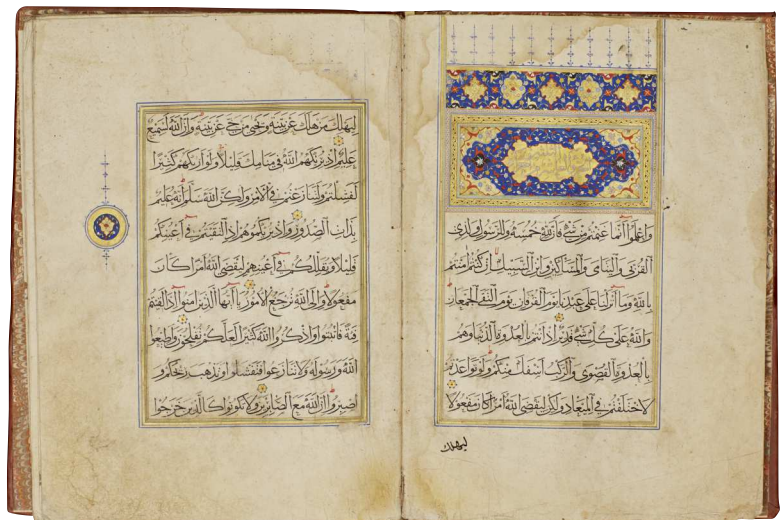 واعلموا انما غنمتم من شيء فان لله خمسه وللرسول ولذي
القربى واليتامى والمساكين وابن السبيل ان كنتم امنتم
بالله وما انزلنا على عبدنا يوم الفرقان يوم التقى الجمعان
والله على كل شيء قدير اذ انتم بالعدوة الدنيا وهم
بالعدوة القصوى والركب اسفل منكم ولو تواعدتم
لاختلفتم في الميعاد ولكن ليقضي الله امرا كان مفعولا
ليهلك
ليهلك من هلك عن بينة ويحيى من حي عن بينة وان الله لسميع
عليم اذ يريكهم الله في منامك قليلا ولو اراكهم كثيرا
لفشلتم ولتنازعتم في الامر ولكن الله سلم انه عليم
بذات الصدور واذ يريكموهم اذ التقيتم في اعينكم
قليلا ويقللكم في اعينهم ليقضي الله امرا كان
مفعولا والى الله ترجع الامور يا ايها الذين امنوا اذا لقيتم
فئة فاثبتوا واذكروا الله كثيرا لعلكم تفلحون واطيعوا
الله ورسوله ولا تنازعوا فتفشلوا وتذهب ريحكم و
اصبروا ان الله مع الصابرين ولا تكونوا كالذين خرجوا